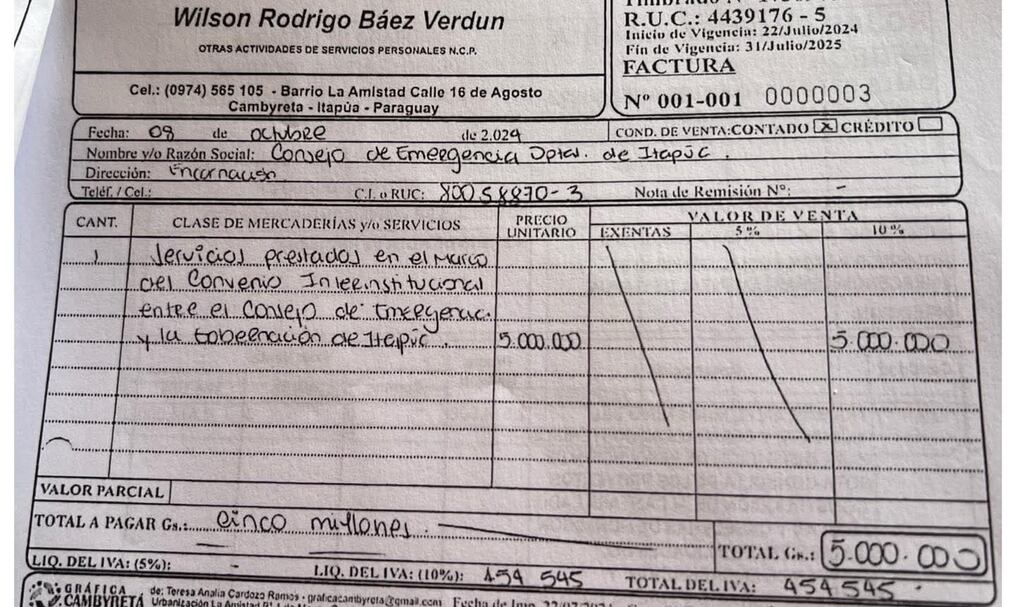 Wilson Rodrigo Báez Verdun
OTRAS ACTIVIDADES DE SERVICIOS PERSONALES N.C.P.
Cel.: (0974) 565 105 - Barrio La Amistad Calle 16 de Agosto
Cambyreta - Itapúa - Paraguay
R.U.C.: 4439176 - 5
Inicio de Vigencia: 22/Julio/2024
Fin de Vigencia: 31/Julio/2025
FACTURA
Nº 001-001 0000003
Fecha: 08 de octubre de 2.024 COND. DE VENTA: CONTADO X CRÉDITO
Nombre y/o Razón Social: Consejo de Emergencia Dptal. de Itapúa.
Dirección: Encarnación
Teléf. / Cel.: C.I. o RUC: 80058870-3 Nota de Remisión Nº: -
CANT. CLASE DE MERCADERÍAS y/o SERVICIOS PRECIO UNITARIO VALOR DE VENTA
EXENTAS 5% 10%
1 Servicios prestados en el Marco
del Convenio Interinstitucional
entre el Consejo de Emergenc.
y la Gobernación de Itapúa. 5.000.000 5.000.000
VALOR PARCIAL
TOTAL A PAGAR Gs.: cinco millones.
TOTAL Gs.: 5.000.000
LIQ. DEL IVA: (5%): - LIQ. DEL IVA: (10%): 454 545 TOTAL DEL IVA: 454 545.
GRÁFICA CAMBYRETA de: Teresa Analia Cardozo Ramos - graficacambyreta@gmail.com